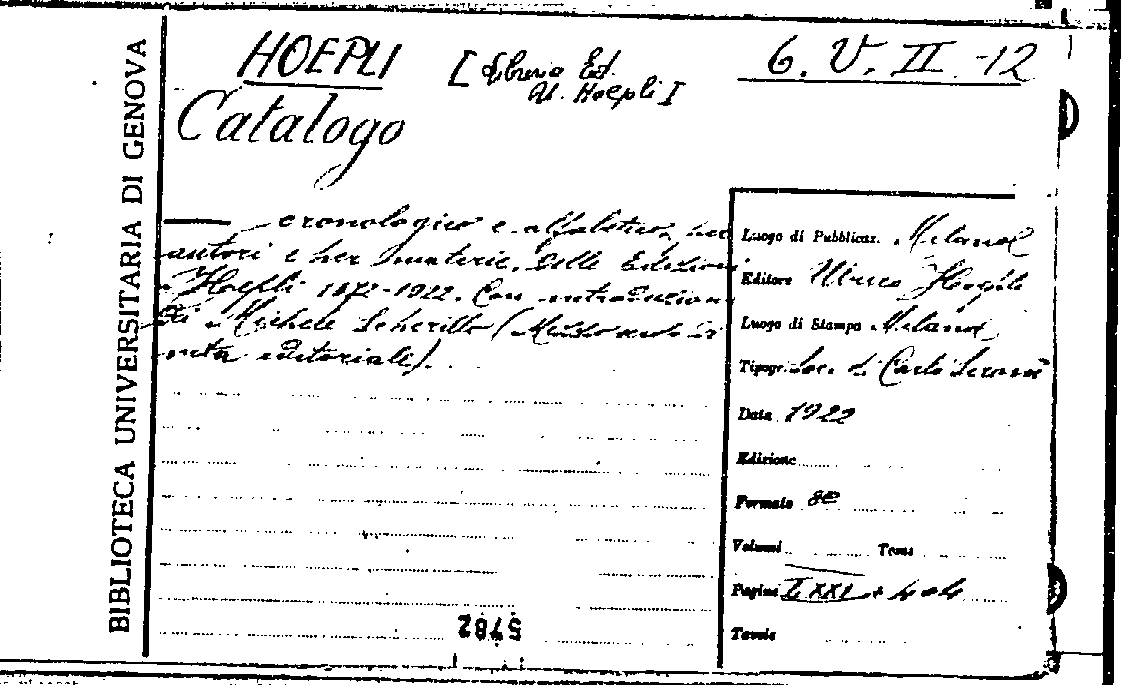 BIBLIOTECA UNIVERSITARIA DI GENOVA
HOEPLI [Libreria Ed. U. Hoepli] 6. V. II -12
Catalogo
— cronologico e alfabetico per
autori e per materie, delle Edizioni
Hoepli 1872-1922. Con introduzione
di Michele Scherillo (Mezzo secolo di
vita editoriale).
Luogo di Pubblicaz. Milano
Editore Ulrico Hoepli
Luogo di Stampa Milano
Tipogr. Soc. d. Carlo
Data 1922
Edizione
Formato 8º
Volumi Tomi
Pagine LXXI + 404
Tavole
5782